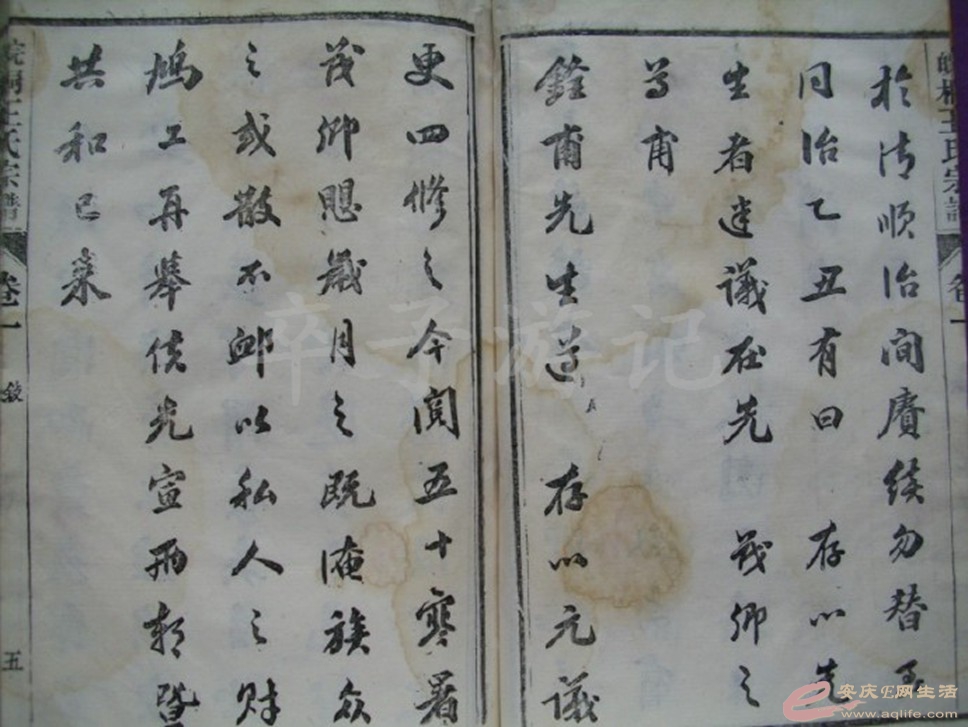 皖桐王氏宗譜
卷一
於清順治間賡續勿替至
同治乙丑有曰 存心先
生者建議在先 茂卿之
尊甫
銓甫先生道 存心元議
更四修之今閲五十寒暑
茂卿愳歲月之既淹族众
之或散不卹以私人之財
鳩工再舉俟光宣兩朝暨
共和已來
皖桐王氏宗譜
卷一
敘
五
卒子游记
安庆E网生活
www.aqlife.com